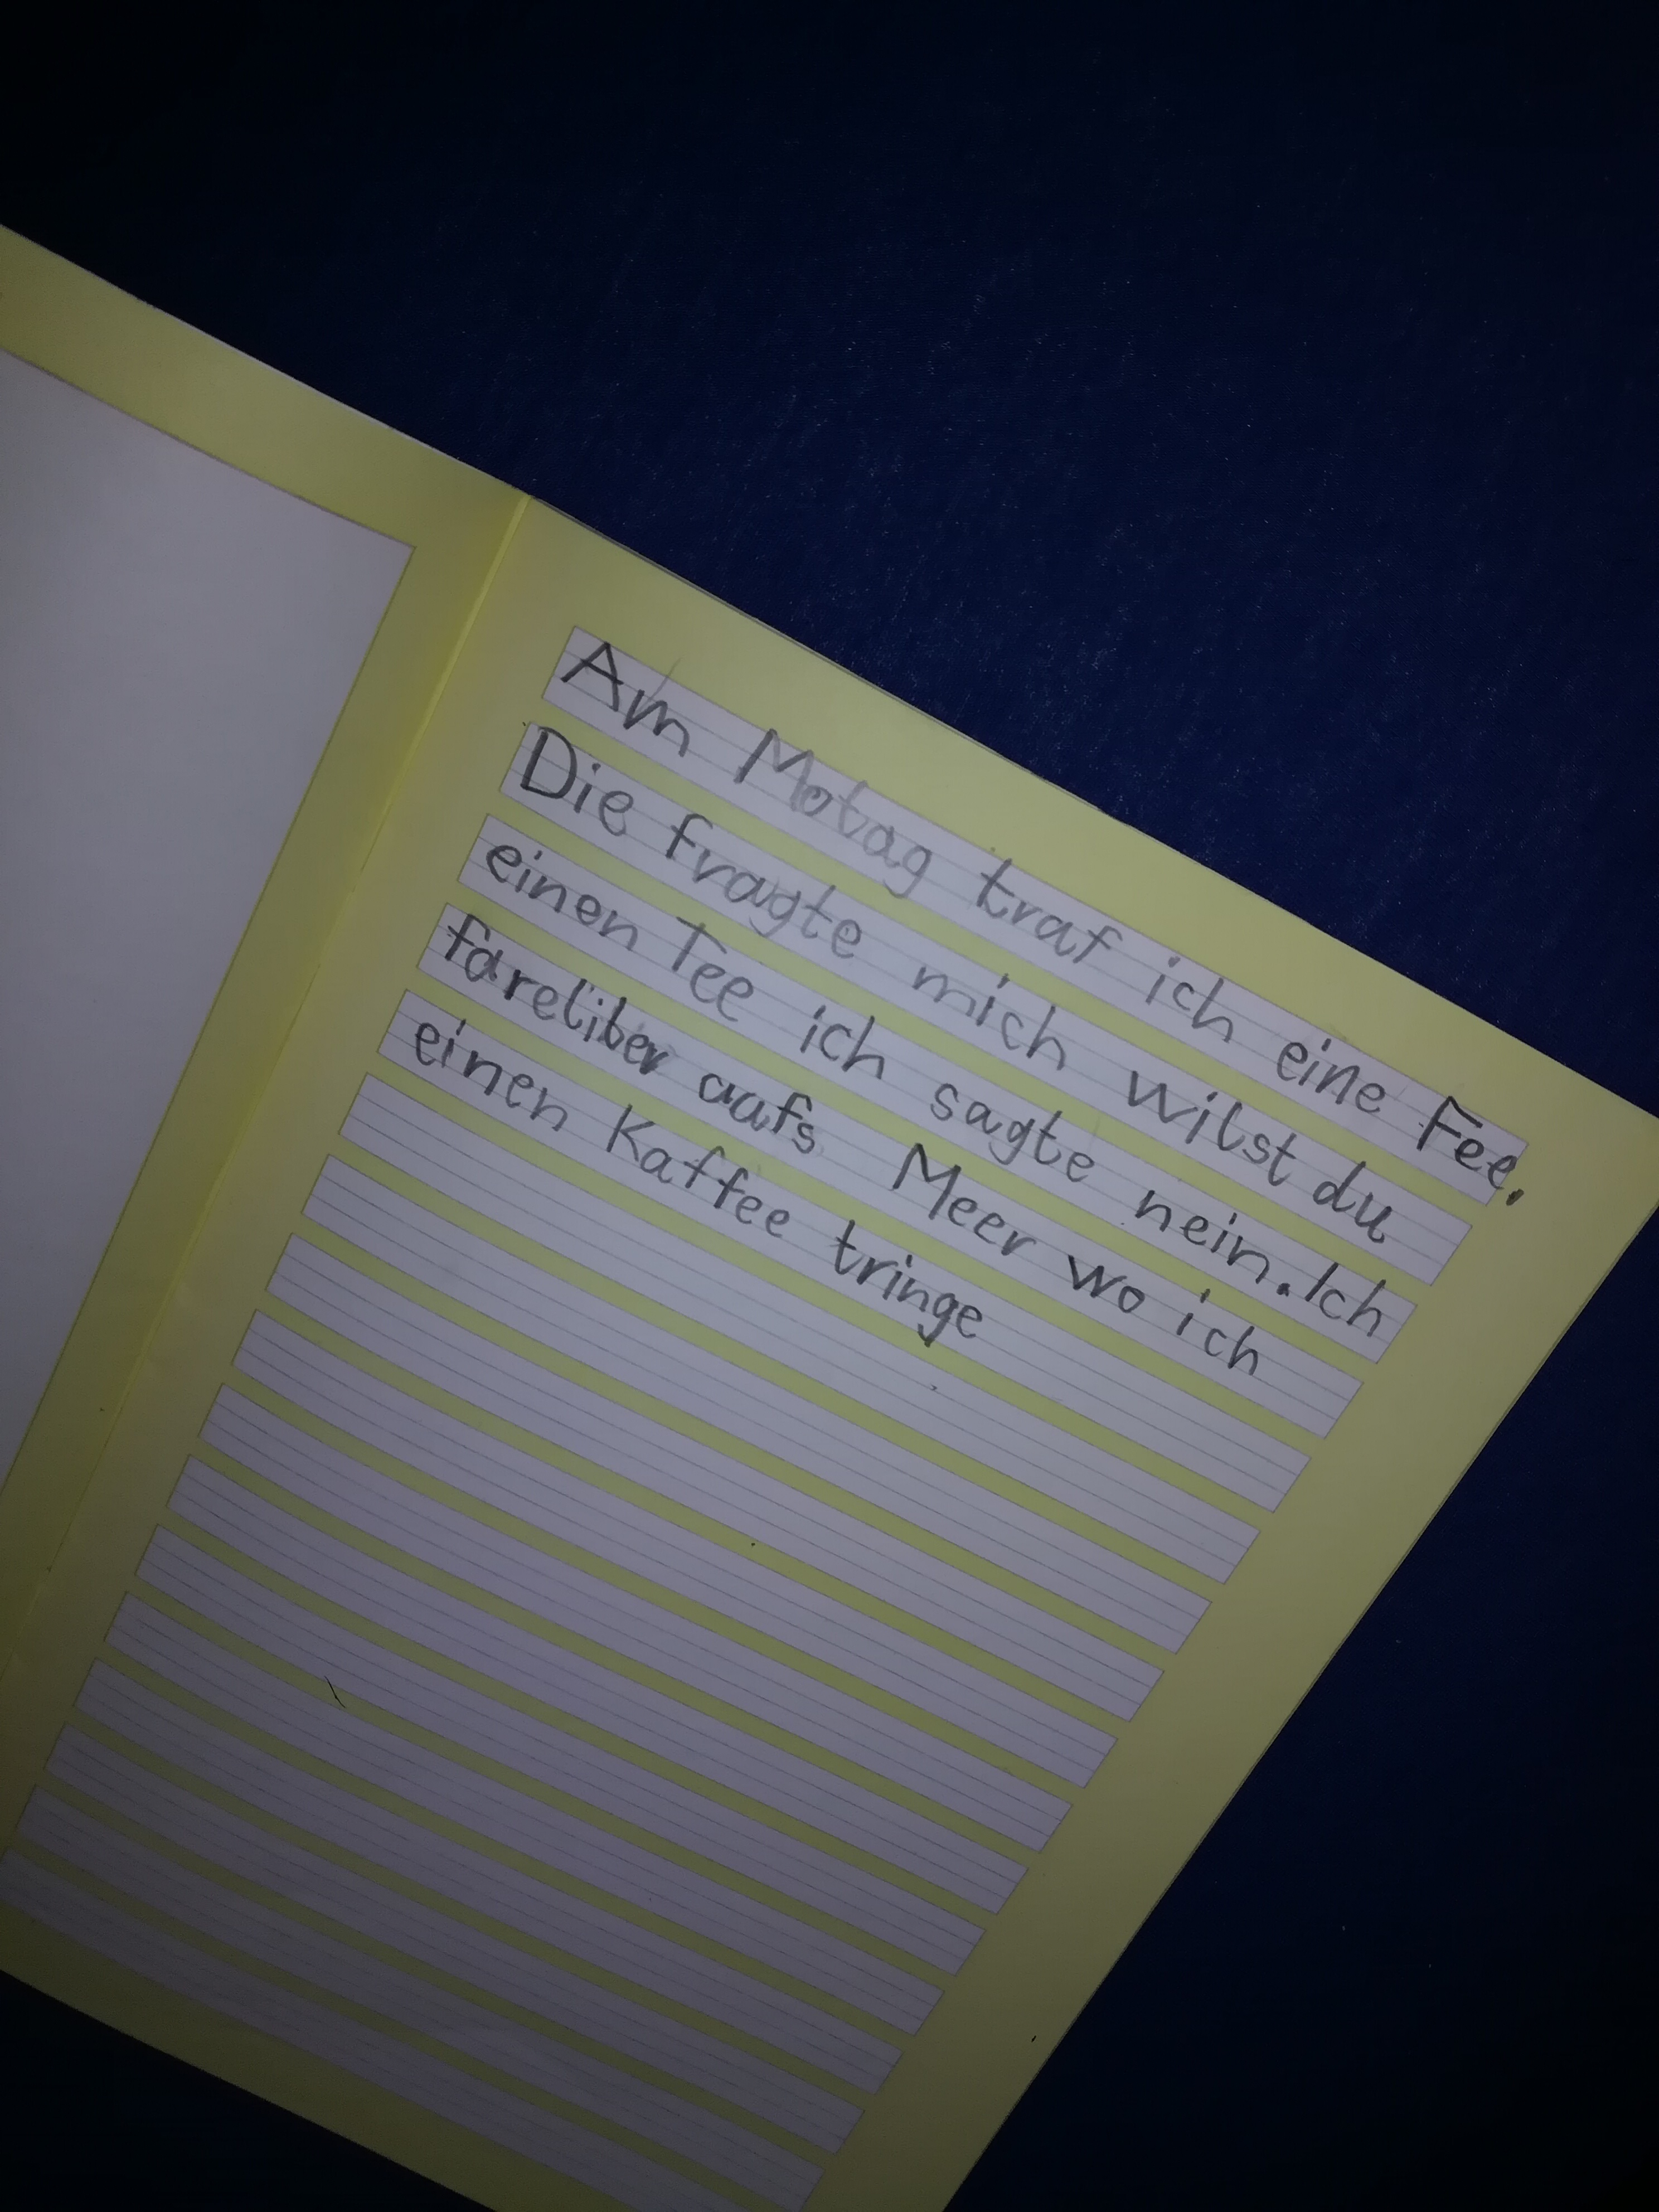 Am Motag traf ich eine Fee.
Die fragte mich wilst du
einen Tee ich sagte nein. Ich
fareliber aafs Meer wo ich
einen Kaffee tringe